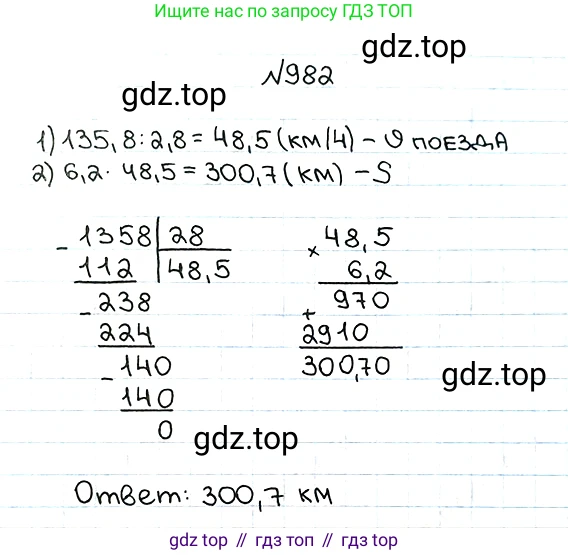 Ищите по запросу ГДЗ ТОП
gdz.top
№982
gdz.top
1) 135,8:2,8 = 48,5 (км/ч) – υ поезда
2) 6,2 · 48,5 = 300,7 (км) – S
- 1358 | 28
112 | 48,5
- 238
224
- 140
140
0
× 48,5
6,2
+ 970
2910
300,70
gdz.top
gdz.top
Ответ: 300,7 км
gdz.top // гдз топ // gdz.top